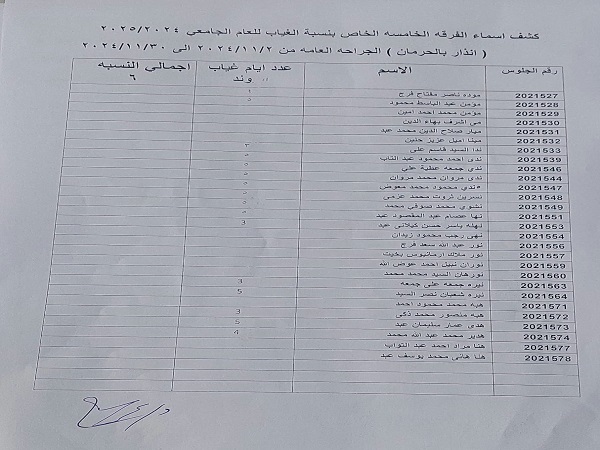 كشف اسماء الفرقه الخامسه الخاص بنسبة الغياب للعام الجامعى ٢٠٢٥/٢٠٢٤
( انذار بالحرمان ) الجراحه العامه من ٢٠٢٤/١١/٢ الى ٢٠٢٤/١١/٣٠
رقم الجلوس الاسم عدد ايام غياب وند اجمالى النسبه ٦
2021527 موده ناصر مفتاح فرج
2021528 مؤمن عبد الباسط محمود
2021529 مؤمن محمد احمد امين
2021530 مى اشرف بهاء الدين
2021531 ميار صلاح الدين محمد عبد
2021532 مينا اميل عزيز حنين
2021533 ندا السيد قاسم على ٣
2021539 ندى احمد محمود عبد التاب ٥
2021546 ندى جمعه عطية علي ٥
2021544 ندى مروان محمد مروان ٥
2021547 ندي محمود محمد معوض ٥
2021548 نسرين ثروت محمد عزمى ٥
2021549 نشوي محمد صوفى محمد ٥
2021551 نها عصام عبد المقصود عبد ٥
2021553 نهله ياسر حسن كيلانى عبد 3
2021554 نهى رجب محمود زيدان
2021556 نور عبد الله سعد فرج
2021557 نور ملاك ارمانيوس بخيت
2021559 نوران نبيل احمد عوض الله
2021560 نورهان السيد محمد محمد
2021563 نيره جمعه على جمعه 3
2021564 نيره شعبان نصر السيد 5
2021571 هبه محمد محمود احمد
2021572 هبه منصور محمد ذكى 3
2021573 هدى عمار سليمان عبد 5
2021574 هدير محمد عبد الله محمد 4
2021577 هنا مراد احمد عبد التواب
2021578 هنا هانى محمد يوسف عبد